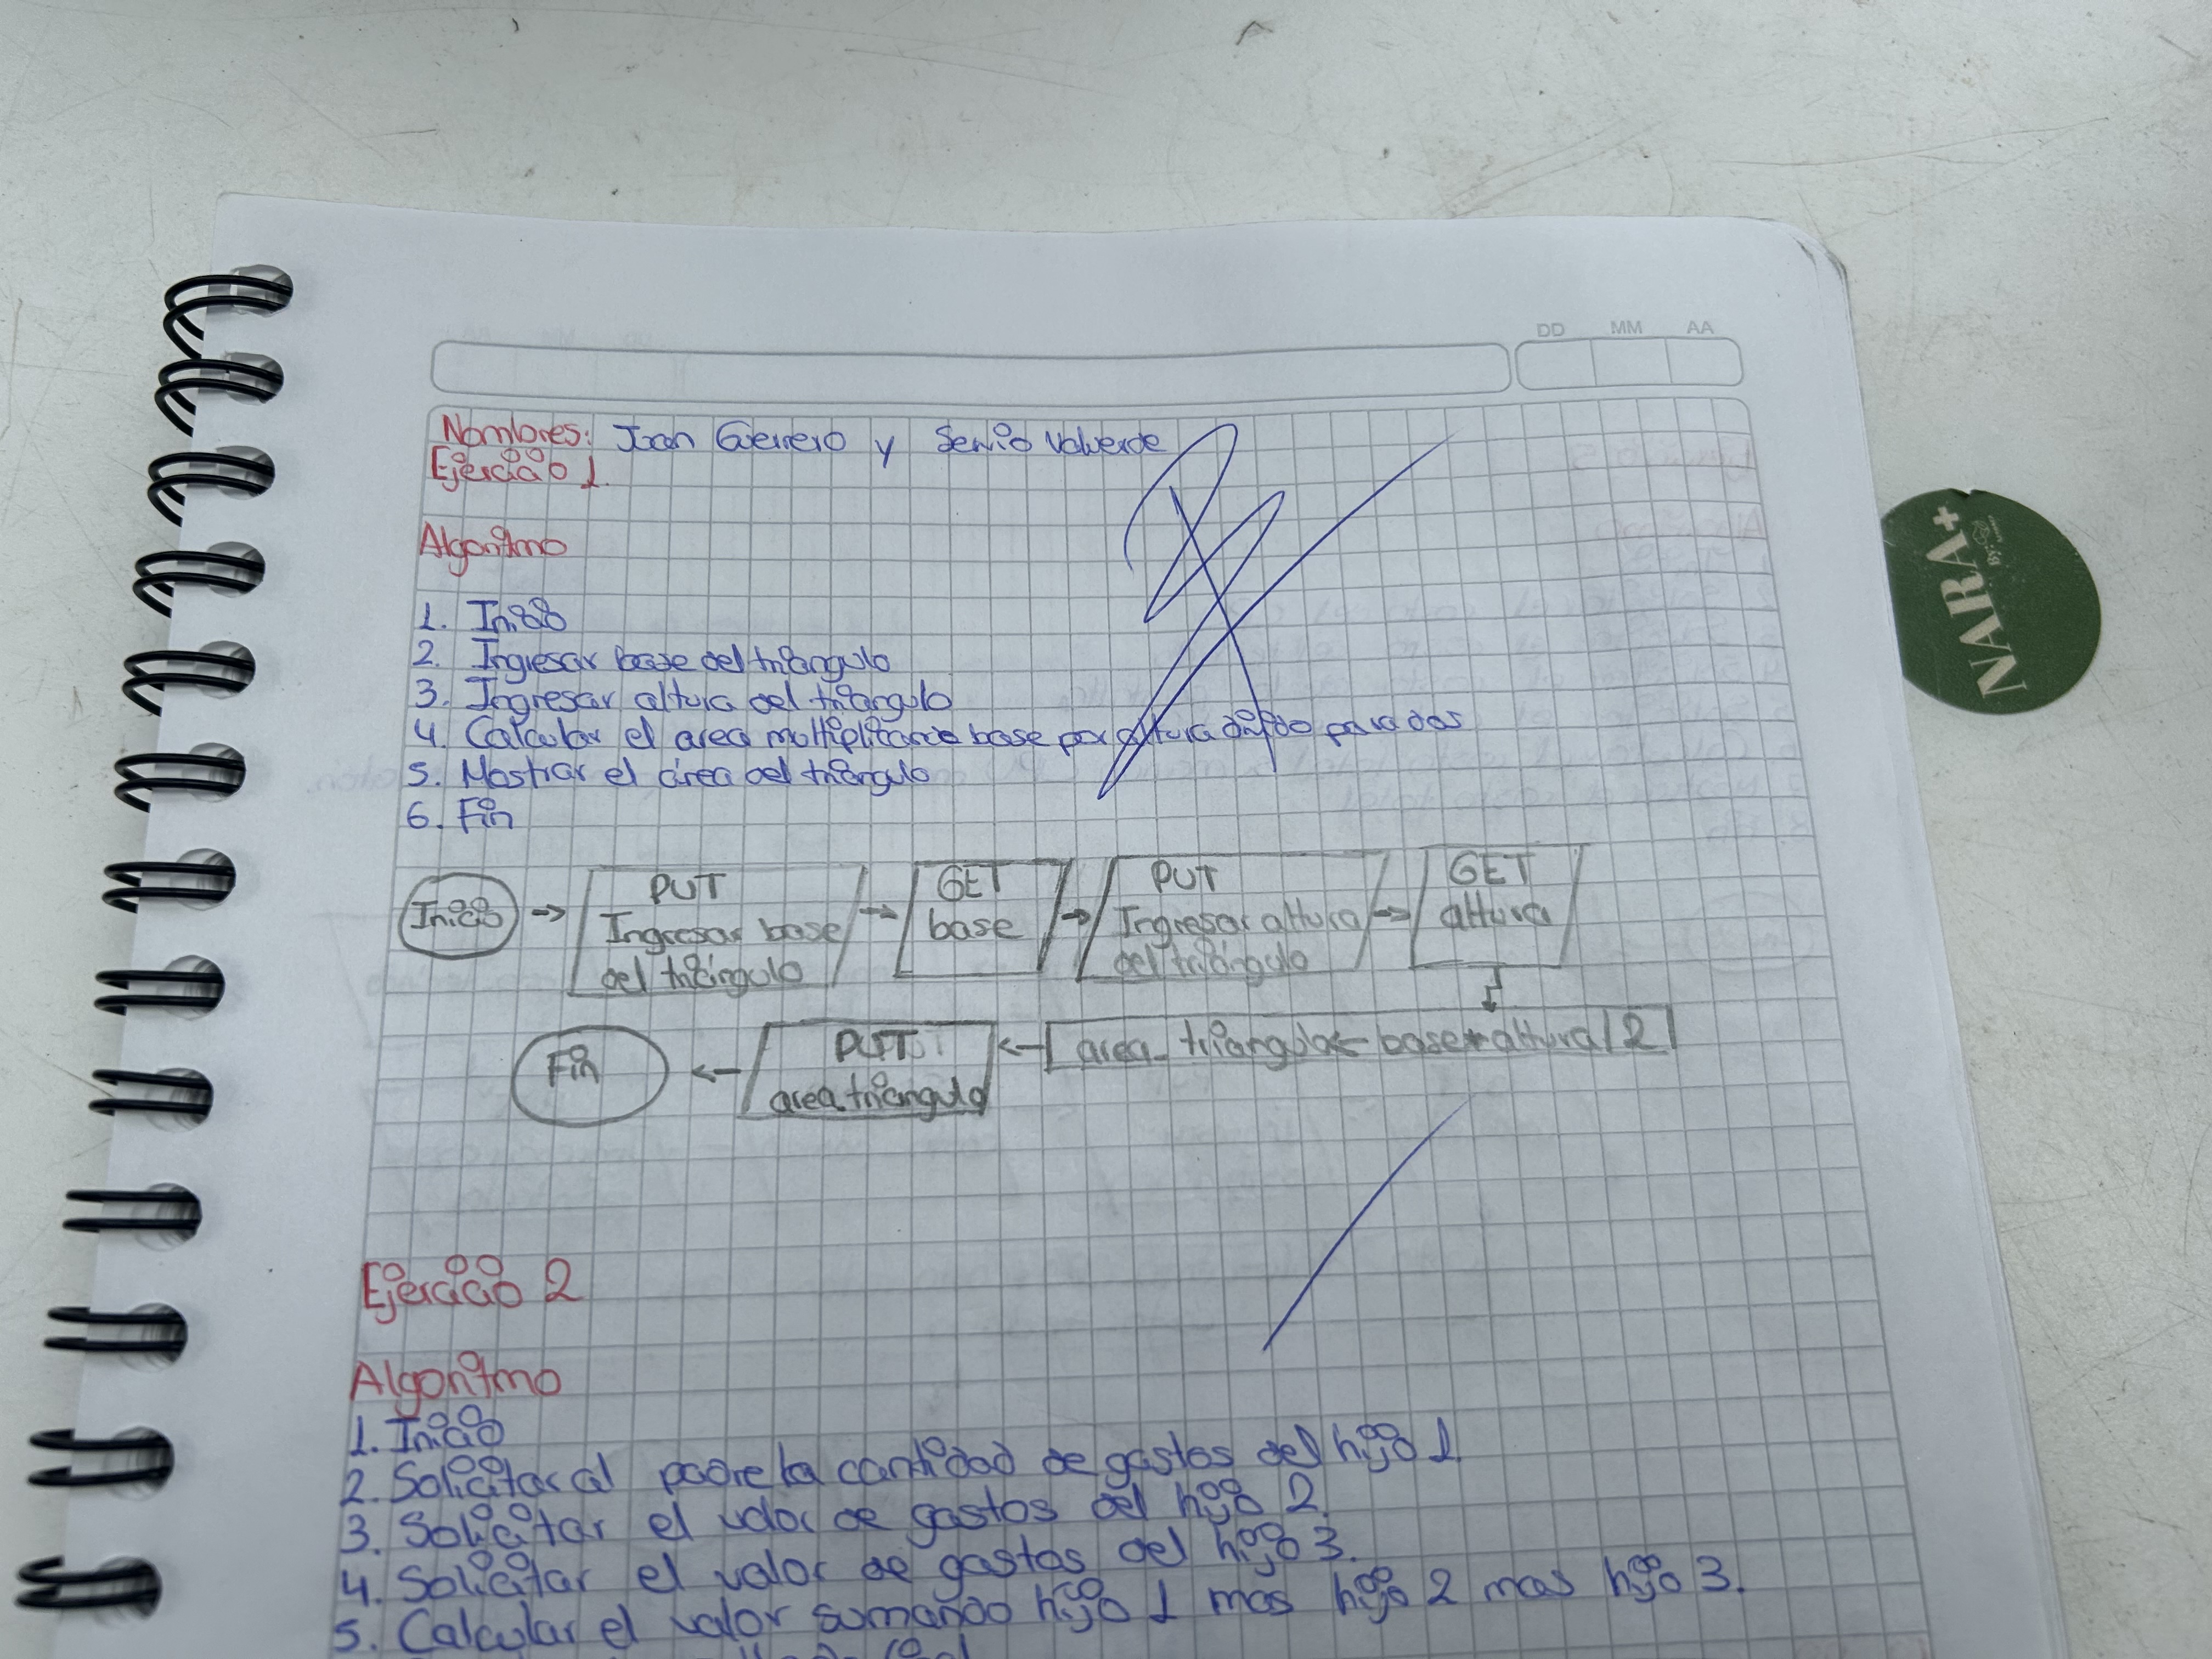 DD MM AA
Nombres: Joan Guerrero y Servio Valverde
Ejercicio 1.
Algoritmo
1. Inicio
2. Ingresar base del triángulo
3. Ingresar altura del triángulo
4. Calcular el area multiplicando base por altura divido para dos
5. Mostrar el área del triángulo
6. Fin
Inicio → PUT Ingresar base del triángulo → GET base → PUT Ingresar altura del triángulo → GET altura
Fin ← PUT area_triangulo ← area_triangulo ← base * altura / 2
NARA+
Ejercicio 2
Algoritmo
1. Inicio
2. Solicitar al padre la cantidad de gastos del hijo 1
3. Solicitar el valor de gastos del hijo 2.
4. Solicitar el valor de gastos del hijo 3.
5. Calcular el valor sumando hijo 1 mas hijo 2 mas hijo 3.